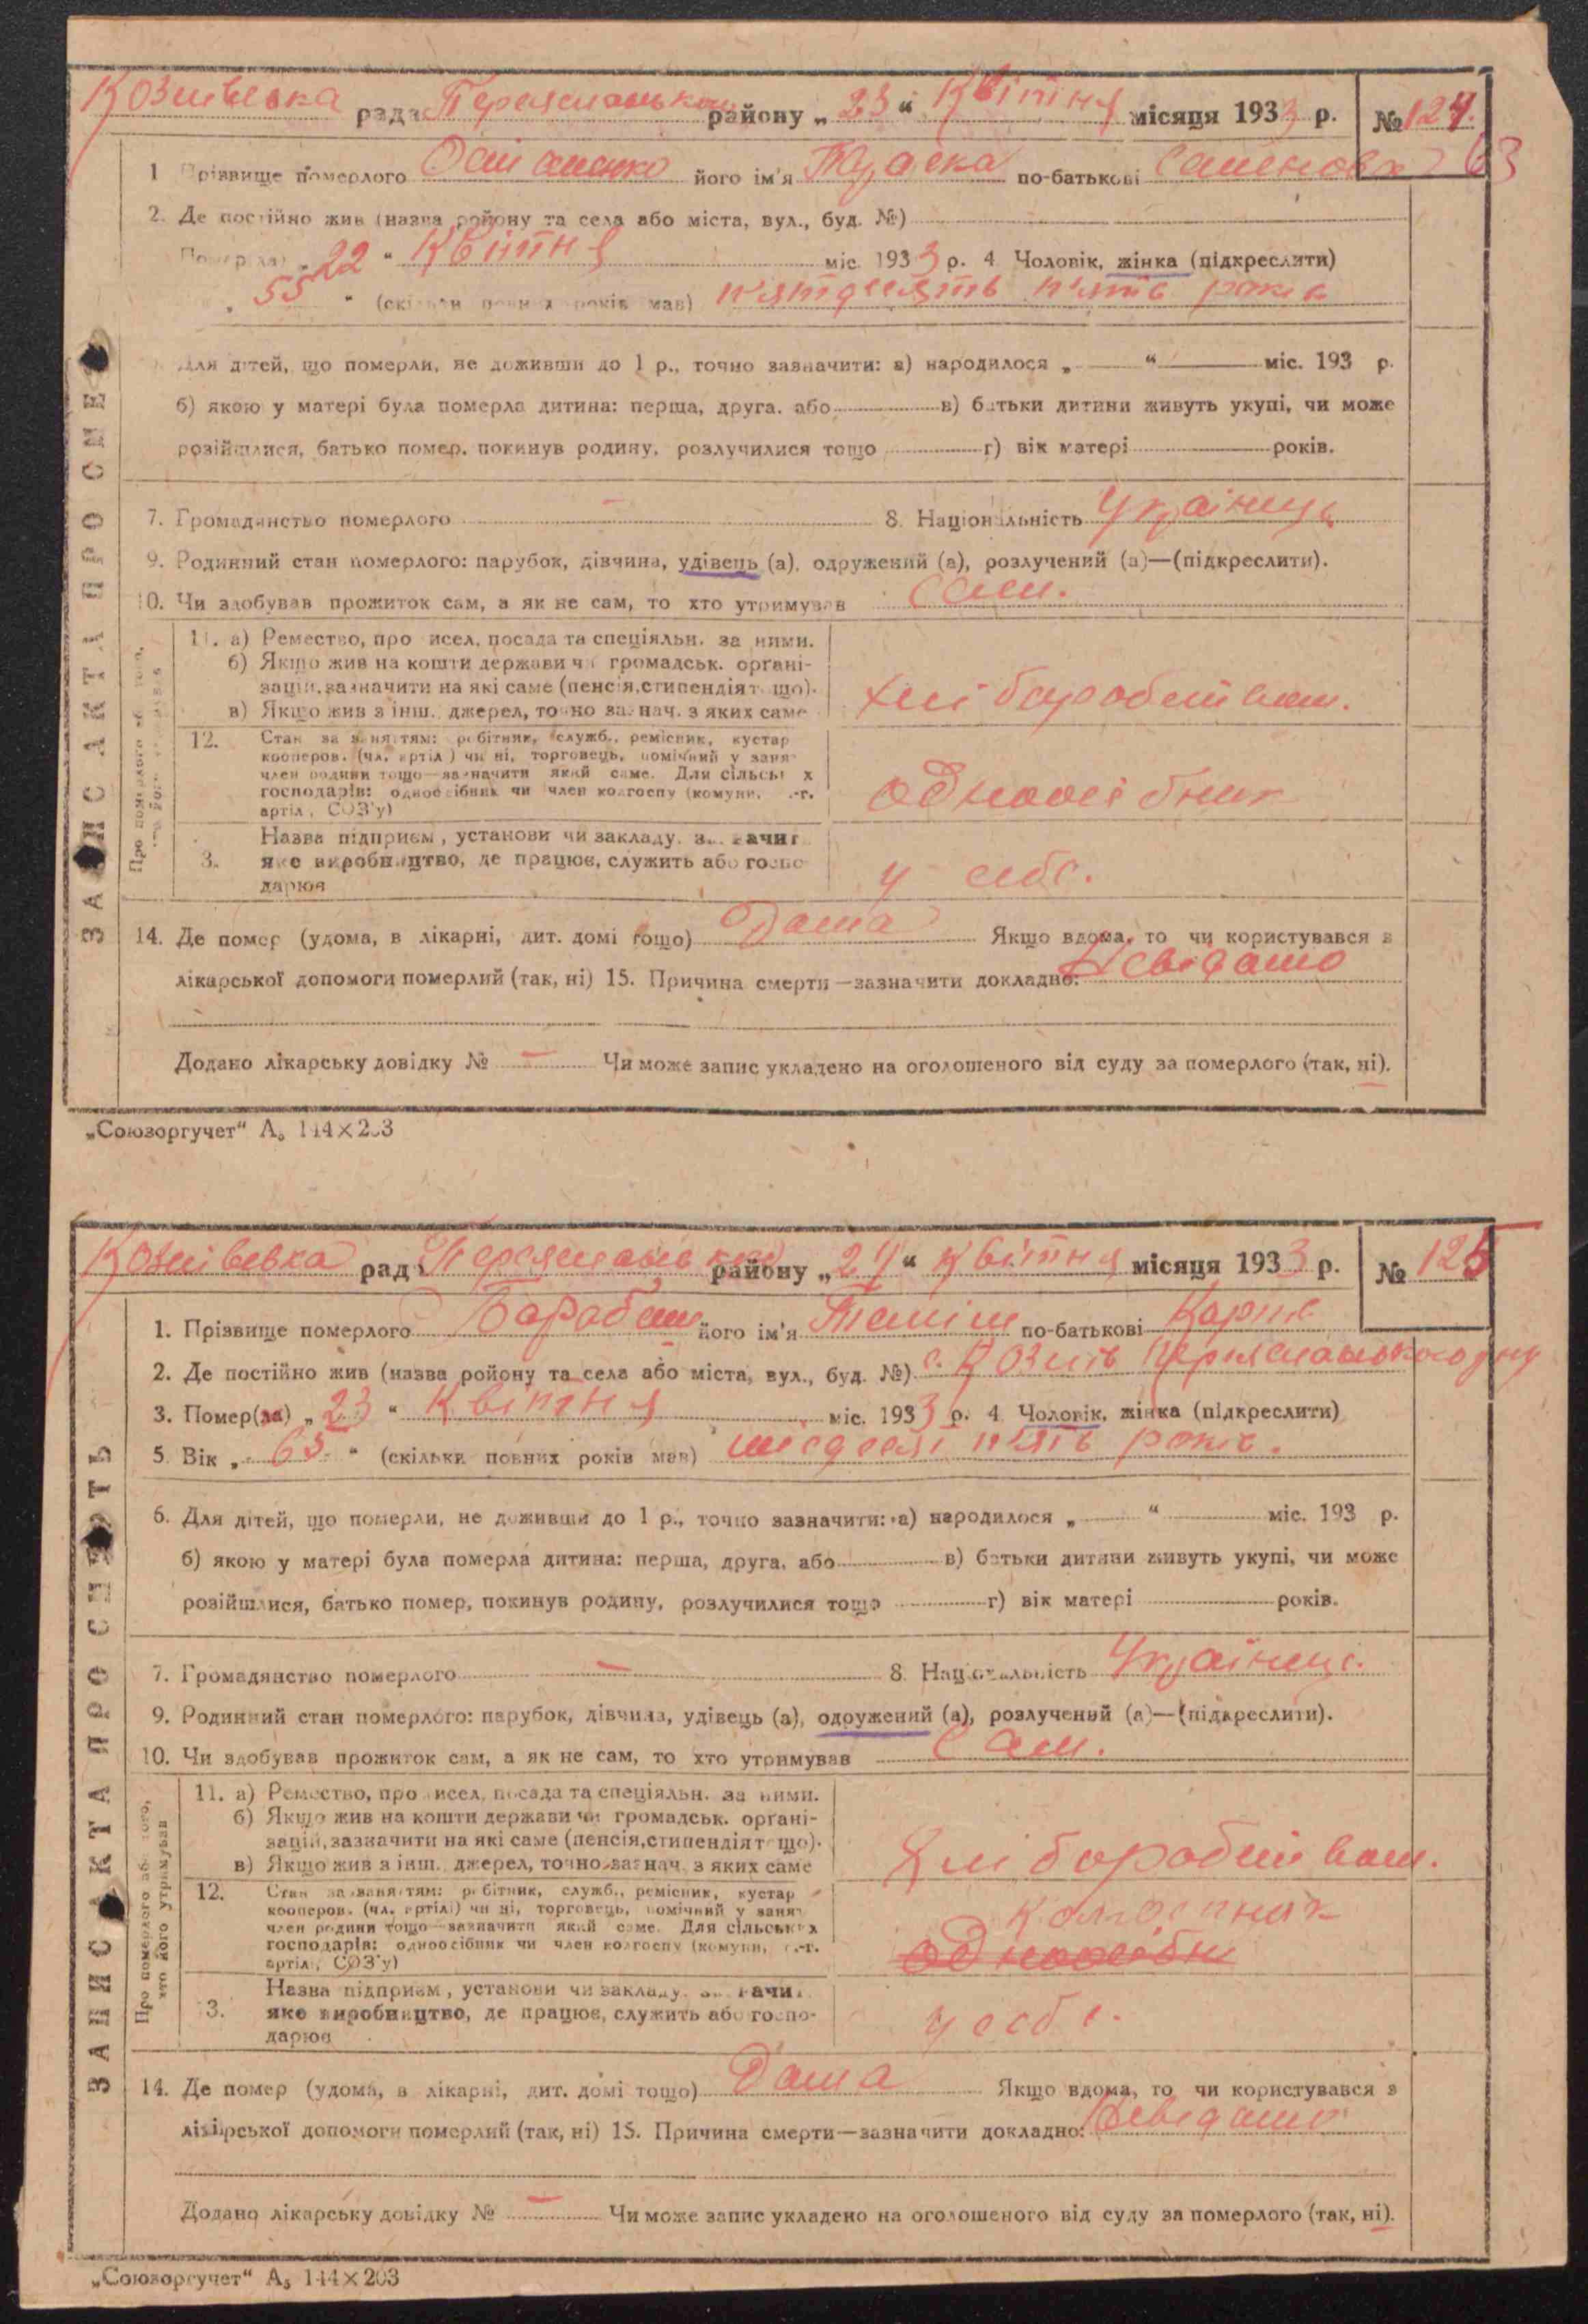 Козлівська рада Переяславської району „ 23 “ Квітня місяця 1933 р. № 124.
63
1 Прізвище померлого його ім'я по-батькові Семенова
2. Де постійно жив (назва ройону та села або міста, вул., буд. №)
Помер(ла) „ 22 “ Квітня міс. 1933 р. 4 Чоловік, жінка (підкреслити)
„ 55 “ (скільки повних років мав) пятдесять пять років
Для дітей, що померли, не доживши до 1 р., точно зазначити: а) народилося „ “ міс. 193 р.
б) якою у матері була померла дитина: перша, друга, або в) батьки дитини живуть укупі, чи може
розійшлися, батько помер, покинув родину, розлучилися тощо г) вік матері років.
7. Громадянство померлого — 8. Національність Українець
9. Родинний стан померлого: парубок, дівчина, удівець (а), одружений (а), розлучений (а)—(підкреслити).
10. Чи здобував прожиток сам, а як не сам, то хто утримував сам.
ЗАПИС АКТА ПРО СМЕ
11. а) Ремество, про исел, посада та спеціяльн. за ними.
б) Якщо жив на кошти держави чи громадськ. органі-
зацій, зазначити на які саме (пенсія, стипендія т що).
в) Якщо жив з інш. джерел, точно зазнач. з яких саме
хліборобством.
12. Стан за заняттям: робітник, служб., ремісник, кустар
кооперов. (чл. артіл) чи ні, торговець, помічний у занят
член родини тощо—зазначити який саме. Для сільськ х
господарів: одноосібник чи член колгоспу (комуни, с.-г.
артіл, СОЗ'у)
одноосібник
3. Назва підприєм, установи чи закладу. з.. начит
яке виробництво, де працює, служить або госпо-
дарює
у себе.
14. Де помер (удома, в лікарні, дит. домі тощо) Дома Якщо вдома, то чи користувався з
лікарської допомоги померлий (так, ні) 15. Причина смерти—зазначити докладно: Невідомо
Додано лікарську довідку № — Чи може запис укладено на оголошеного від суду за померлого (так, ні).
„Союзоргучет“ А₅ 144×203
Козлівська рад Переяславської району „ 24 “ Квітня місяця 1933 р. № 125
1. Прізвище померлого Барабаш його ім'я по-батькові Карп
2. Де постійно жив (назва ройону та села або міста, вул., буд. №) с. Козлів Переяславського р-ну
3. Помер(ла) „ 23 “ Квітня міс. 1933 р. 4 Чоловік, жінка (підкреслити)
5. Вік „ 65 “ (скільки повних років мав) пять років.
6. Для дітей, що померли, не доживши до 1 р., точно зазначити: а) народилося „ “ міс. 193 р.
б) якою у матері була померла дитина: перша, друга, або в) батьки дитини живуть укупі, чи може
розійшлися, батько помер, покинув родину, розлучилися тощо г) вік матері років.
7. Громадянство померлого — 8. Національність Українець.
9. Родинний стан померлого: парубок, дівчина, удівець (а), одружений (а), розлучений (а)—(підкреслити).
10. Чи здобував прожиток сам, а як не сам, то хто утримував Сам.
ЗАПИС АКТА ПРО СМЕРТЬ
Про померлого або того, хто його утримував
11. а) Ремество, про исел, посада та спеціяльн. за ними.
б) Якщо жив на кошти держави чи громадськ. органі-
зацій, зазначити на які саме (пенсія, стипендія т що).
в) Якщо жив з інш. джерел, точно зазнач. з яких саме
Хліборобством.
12. Стан за заняттям: робітник, служб., ремісник, кустар
кооперов. (чл. артілі) чи ні, торговець, помічний у занят
член родини тощо—зазначити який саме. Для сільських
господарів: одноосібник чи член колгоспу (комуни, с.-г.
артілі, СОЗ'у)
колгоспник
одноосібн
3. Назва підприєм, установи чи закладу. з.. начит
яке виробництво, де працює, служить або госпо-
дарює
у себе.
14. Де помер (удома, в лікарні, дит. домі тощо) Дома Якщо вдома, то чи користувався з
лікарської допомоги померлий (так, ні) 15. Причина смерти—зазначити докладно: Невідомо
Додано лікарську довідку № — Чи може запис укладено на оголошеного від суду за померлого (так, ні).
„Союзоргучет“ А₅ 144×203